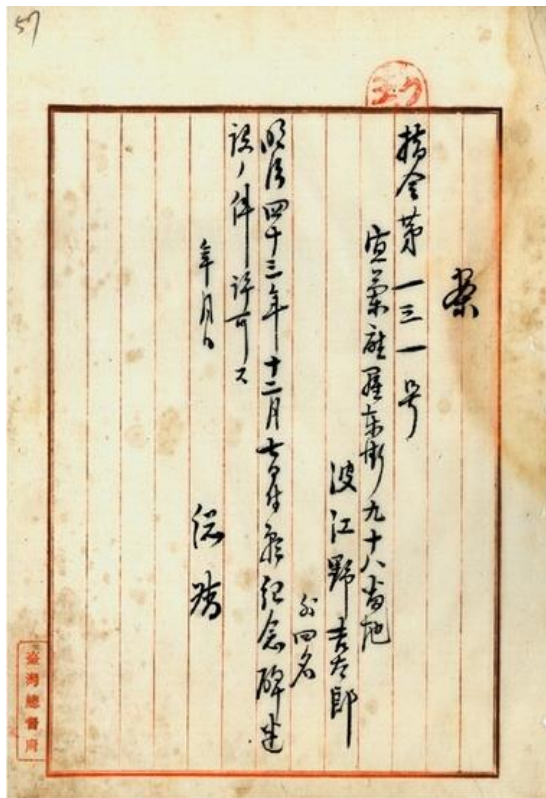 57
案
指令第一三一号
宜蘭庁羅東街九十八番地
波江野吉太郎
外四名
明治四十三年十二月七日付願紀念碑建
設ノ件許可ス
年月日
総督
臺灣總督府